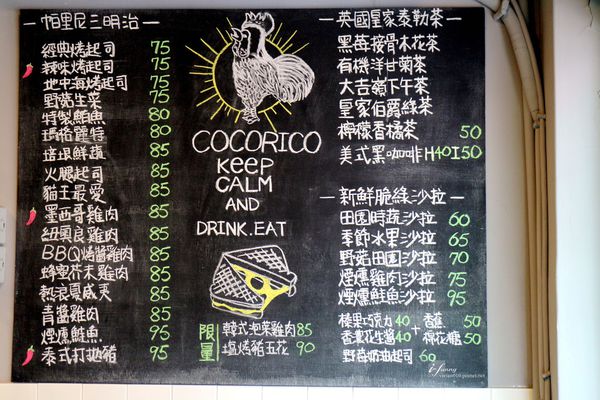 帕里尼三明治
經典烤起司 75
辣味烤起司 75
地中海烤起司 75
野菇生菜 75
特製鮪魚 80
瑪格麗特 80
培根鮮蔬 85
火腿起司 85
貓王最愛 85
墨西哥雞肉 85
紐奧良雞肉 85
BBQ烤醬雞肉 85
蜂蜜芥末雞肉 85
熱浪夏威夷 85
青醬雞肉 85
煙燻鮭魚 95
泰式打拋豬 95
COCORICO
KEEP
CALM
AND
DRINK.EAT
限量
韓式泡菜雞肉 85
塩烤豬五花 90
英國皇家泰勒茶
黑莓接骨木花茶
有機洋甘菊茶
大吉嶺下午茶
皇家伯爵綠茶
檸檬香橘茶 50
美式黑咖啡 H40 I50
新鮮脆綠沙拉
田園時蔬沙拉 60
季節水果沙拉 65
野菇田園沙拉 70
煙燻雞肉沙拉 75
煙燻鮭魚沙拉 95
榛果巧克力 40 + 香蕉 50
香濃花生醬 40 棉花糖 50
野莓奶油起司 60